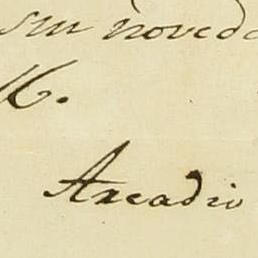 sin noved
16.
Arcadio